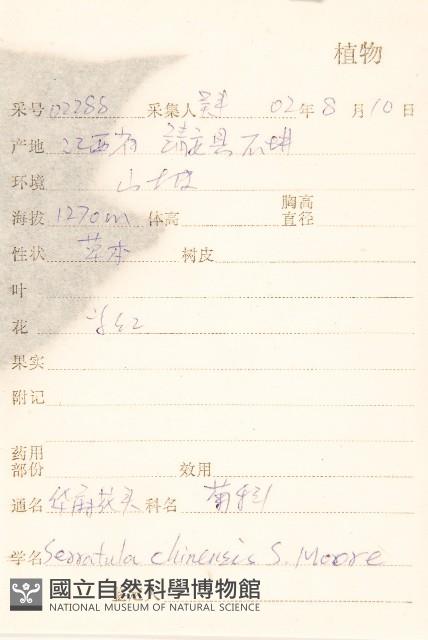 植物
采号 02288 采集人 吴丰 02年8月10日
产地 江西省 靖安县石圳
环境 山坡
海拔 1270m 体高 胸高直径
性状 草本 树皮
叶
花 紫红
果实
附记
药用部份 效用
通名 华麻花头 科名 菊科
学名 Serratula chinensis S. Moore
國立自然科學博物館
NATIONAL MUSEUM OF NATURAL SCIENCE